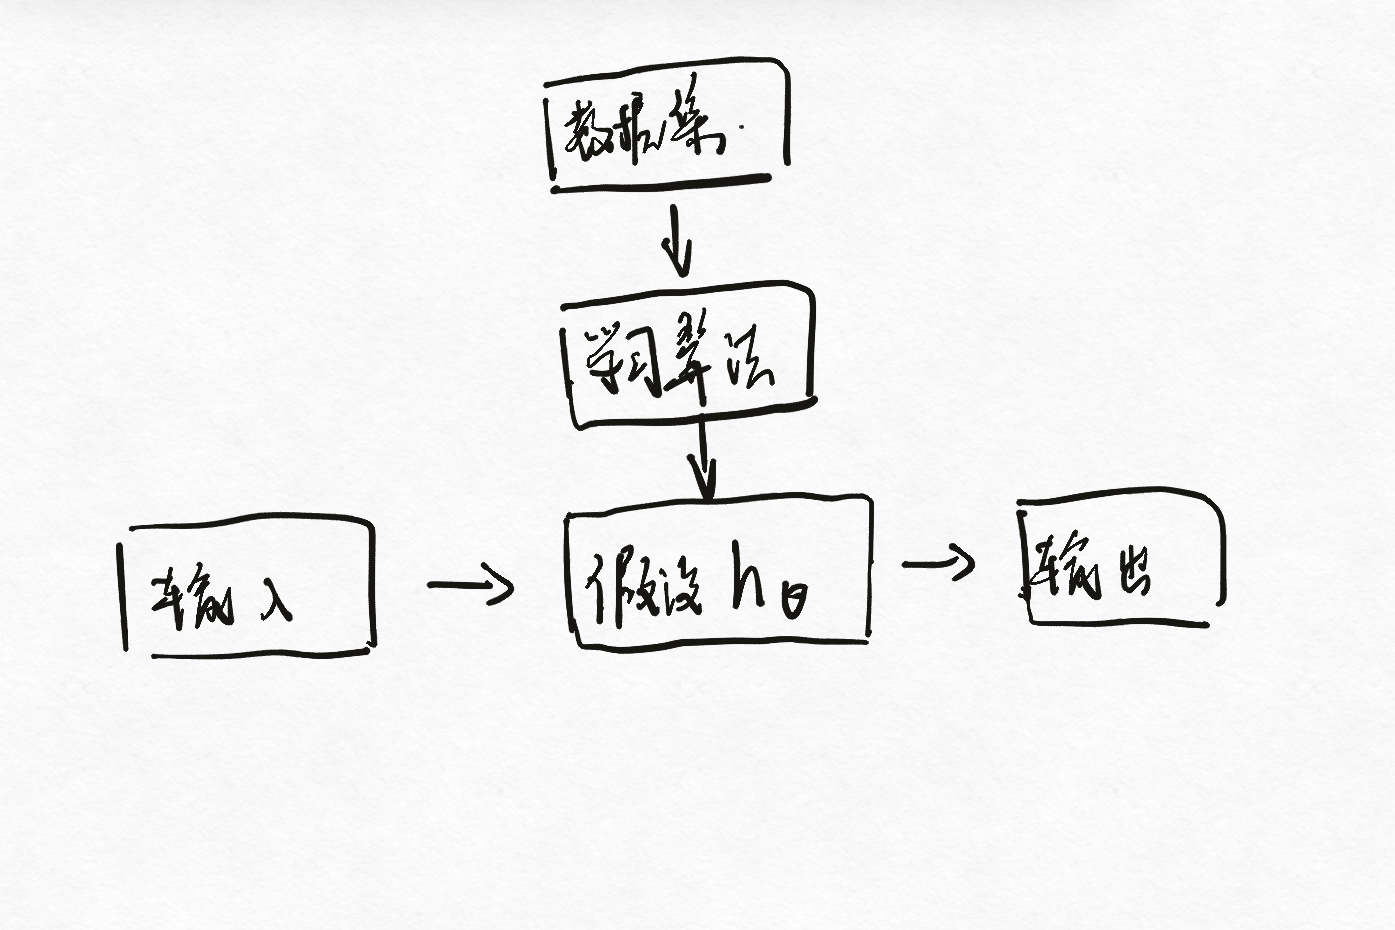 数据集
学习算法
输入
假设 hθ
输出